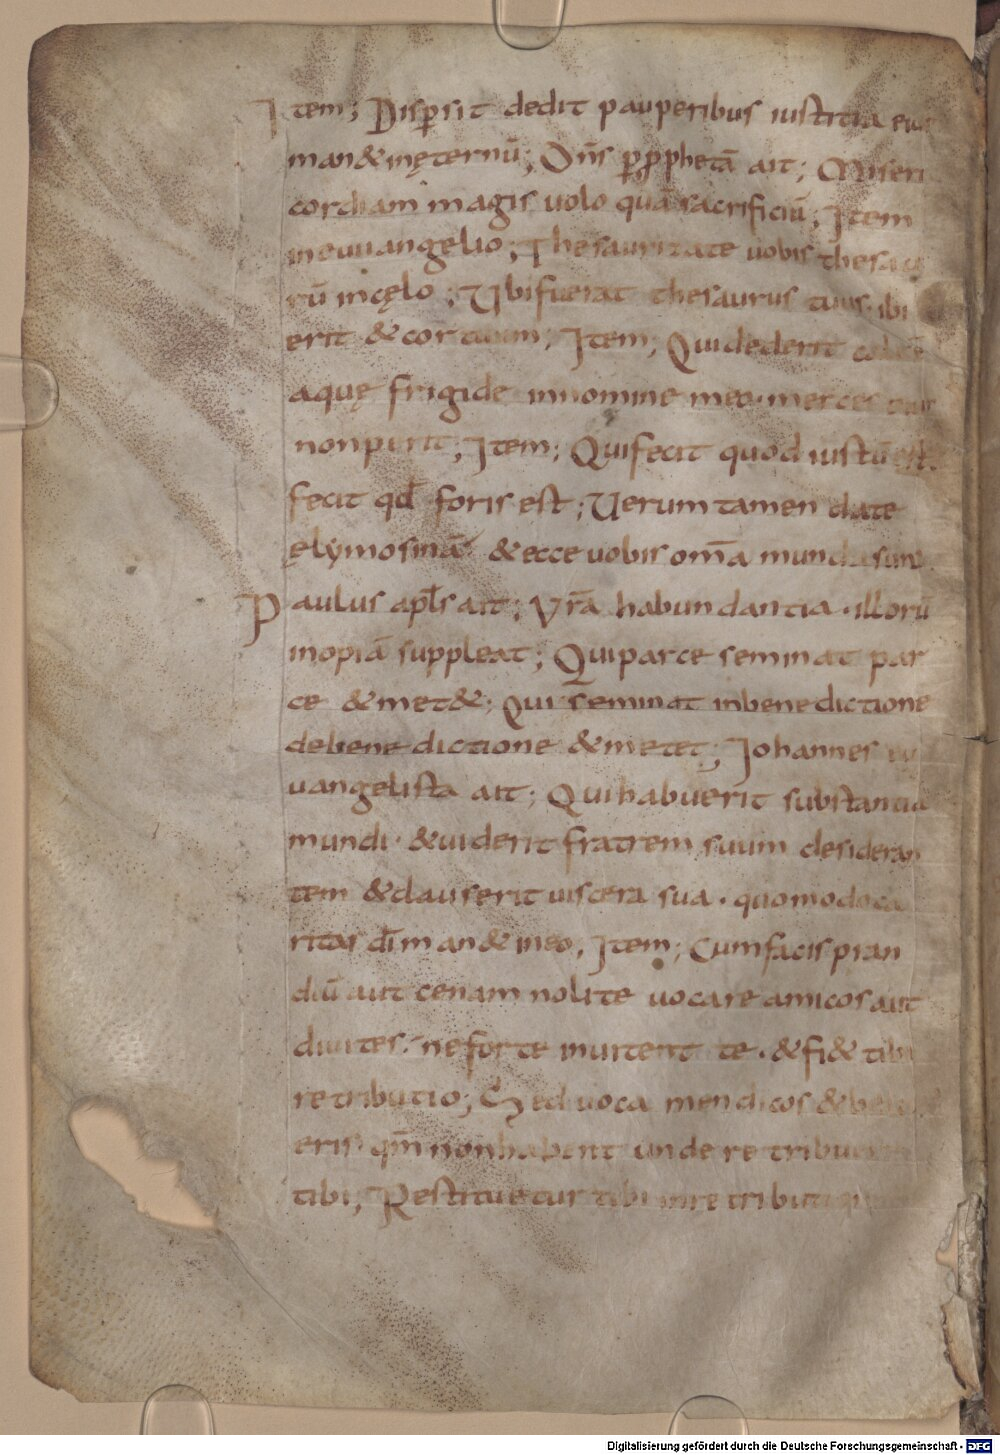 Item; Disp̄sit dedit pauperibus iustitia eius
man& inęternū; Dn̄s p̱ p̱phetā ait; Miseri
cordiam magis uolo quā sacrificiū; Item
ineuuangelio; Thesaurizate uobis thesau
rū incęlo; Ubi fuerat thesaurus tuus· ibi
erit & cor tuum; Item; Qui dederit calicē
aquę frigide innomine meo· merces eius
non perit; Item; Qui fecit quod iustū est·
fecit qđ foris est; Uerum tamen date
ęlymosinā & ecce uobis om̄a munda sunt.
Paulus apl̄s ait; Vr̄a habundantia· illorū
inopiā suppleat; Qui parce seminat par
ce & met&; Qui seminat inbenedictione
debenedictione & metet; Iohannes eu
uangelista ait; Qui habuerit substantia
mundi· & uiderit fratrem suum desideran
tem & clauserit uiscera sua· quomodo ca
ritas dī man& ineo; Item; Cum facis pran
diū aut cenam nolite uocare amicos aut
diuites· ne forte inuitent te· & fi& tibi
retributio; Sed uoca mendicos &
eris· qm̄ non habent unde retribu
tibi; Restituetur tibi inre
Digitalisierung gefördert durch die Deutsche Forschungsgemeinschaft - DFG